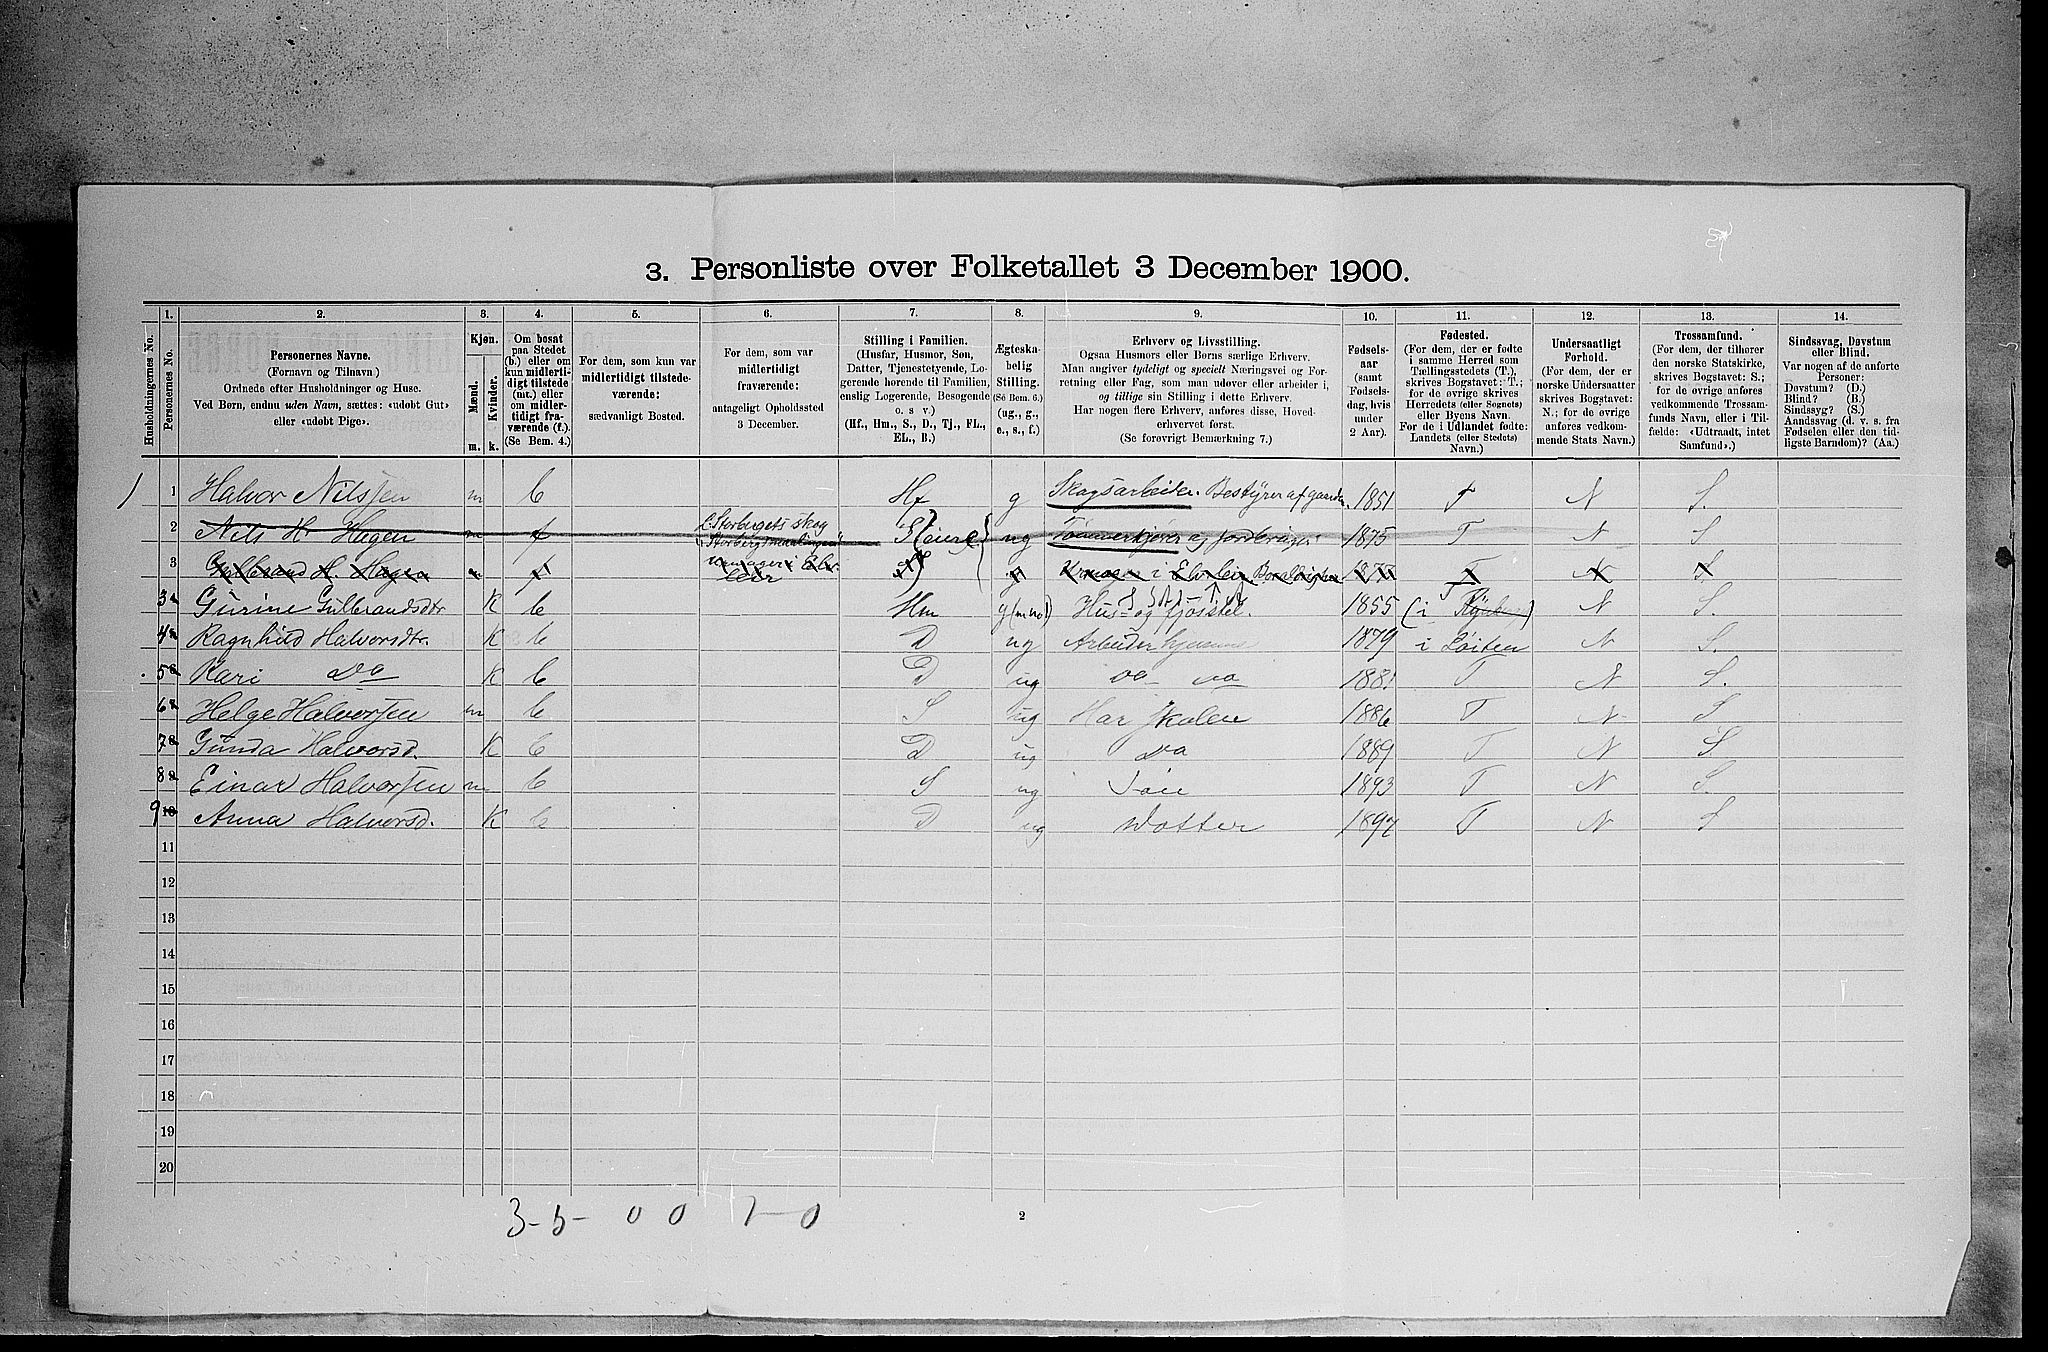 3. Personliste over Folketallet 3 December 1900.
1. 2. 3. 4. 5. 6. 7. 8. 9. 10. 11. 12. 13. 14.
Husholdningernes No.
Personernes No.
Personernes Navne.
(Fornavn og Tilnavn.)
Ordnede efter Husholdninger og Huse.
Ved Børn, endnu uden Navn, sættes: «udøbt Gut»
eller «udøbt Pige».
Kjøn.
Mænd.
Kvinder.
m. k.
Om bosat
paa Stedet
(b.) eller om
kun midlerti-
digt tilstede
(mt.) eller
om midler-
tidigt fra-
værende (f.).
(Se Bem. 4.)
For dem, som kun var
midlertidigt tilstede-
værende:
sædvanligt Bosted.
For dem, som var
midlertidigt
fraværende:
antageligt Opholdssted
3 December.
Stilling i Familien.
(Husfar, Husmor, Søn,
Datter, Tjenestetyende, Lo-
gerende hørende til Familien,
enslig Logerende, Besøgende
o. s v.)
(Hf., Hm., S., D., Tj., FL.,
EL., B.)
Ægteska-
belig
Stilling.
(Se Bem. 6.)
(ug., g.,
e., s., f.)
Erhverv og Livsstilling.
Ogsaa Husmors eller Børns særlige Erhverv.
Man angiver tydeligt og specielt Næringsvei og For-
retning eller Fag, som man udøver eller arbeider i,
og tillige sin Stilling i dette Erhverv.
Har nogen flere Erhverv, anføres disse, Hoved-
erhvervet først.
(Se forøvrigt Bemærkning 7.)
Fødsels-
aar
(samt
Fødsels-
dag, hvis
under
2 Aar).
Fødested.
(For dem, der er fødte
i samme Herred som
Tællingsstedets (T.),
skrives Bogstavet: T.;
for de øvrige skrives
Herredets (eller Sognets)
eller Byens Navn.
For de i Udlandet fødte:
Landets (eller Stedets)
Navn.)
Undersaatligt
Forhold.
(For dem, der er
norske Undersaatter
skrives Bogstavet:
N.; for de øvrige
anføres vedkom-
mende Stats Navn.)
Trossamfund.
(For dem, der tilhører
den norske Statskirke,
skrives Bogstavet: S.;
for de øvrige anføres
vedkommende Trossam-
funds Navn, eller i Til-
fælde: «Udtraadt, intet
Samfund».)
Sindssvag, Døvstum
eller Blind.
Var nogen af de anførte
Personer:
Døvstum? (D.)
Blind? (B.)
Sindssyg? (S.)
Aandssvag (d. v. s. fra
Fødselen eller den tid-
ligste Barndom)? (Aa.)
1 1 Halvor Nilssen m b Hf g Skogsarbeider. Bestyrer af gaarden 1851 T N S.
2 Nils H. Hagen m f Storbergets skog S (eiere) ug Tømmerkjører og jordbruger 1875 T N S
3 Gulbrand H. Hagen m f S T N S
3 Gurine Gulbrandsdtr K b Hm g Hus- og fjøsstel. 1855 (i T N S.
4 Ragnhild Halvorsdtr. K b D ug Arbeider hjemme 1879 i Løiten N S.
5 Kari Do K b D ug do do 1881 T N S.
6 Helge Halvorsen m b S ug Har skolen 1886 T N S
7 Gunda Halvorsd. K b D ug Do 1889 T N S
8 Einar Halvorsen m b S ug 1893 T N S.
9 10 Anna Halvorsd. K b D ug Dotter 1897 T N S
11
12
13
14
15
16
17
18
19
20
3-5- 0 0 7-0
2